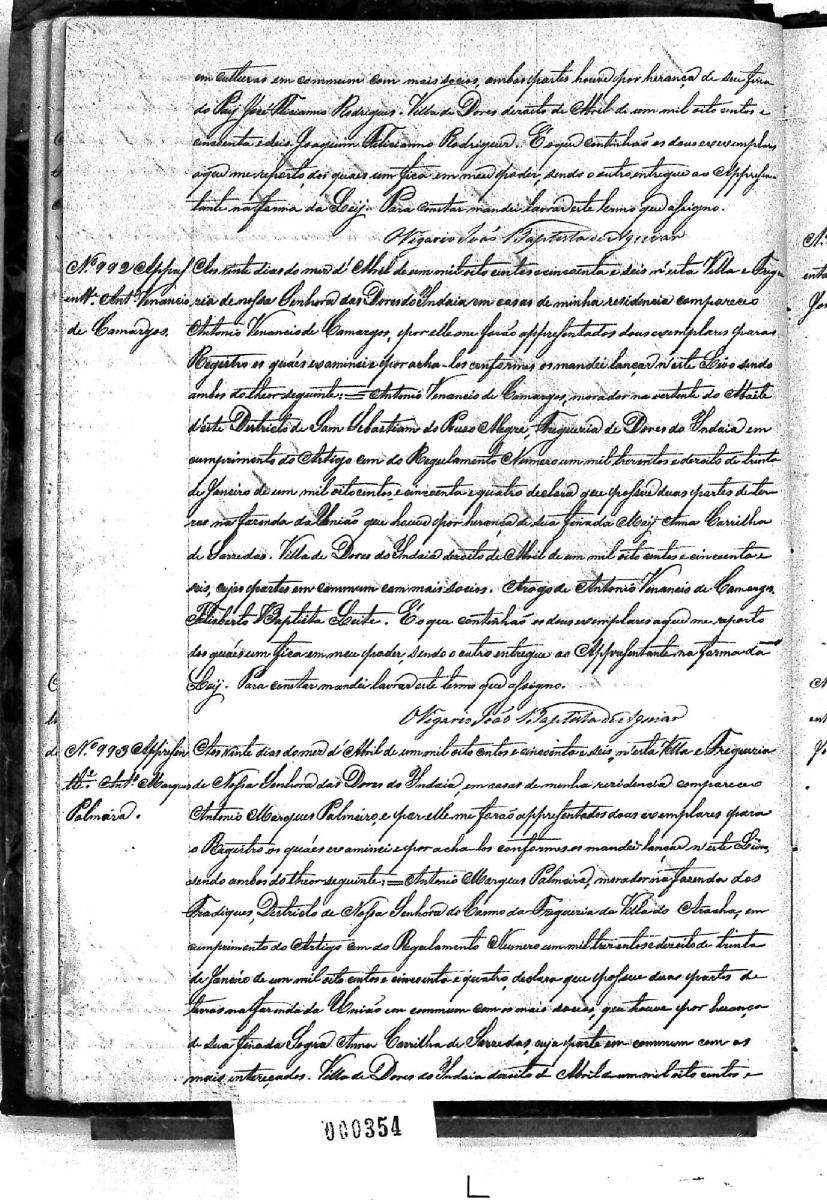 em culturas em commum com mais socios, ambas partes houve por herança de seu fina
do Pay José Felicianno Rodrigues. Villa de Dores dezoito de Abril de um mil oito centos e
cincoenta e deis Joaquim Felicianno Rodrigues. E o que continhão os dous exemplares
aque me reporto dos quaes um fica em meu poder, sendo o outro entregue ao Appresen
tante na forma da Ley. Para constar mandei lavrar este termo que assigno.
O Vigario João Baptista de Aguiar
Nº 992 Appres
entte. Antº Venancio
de Camargos.
Aos vinte dias do mez d'Abril de um mil oito centos e cincoenta e seis n'esta Villa e Fregue
ria de nossa Senhora das Dores do Indaia em casas de minha residencia compareceo
Antonio Venancio de Camargos, e por elle me forão appresentados dous exemplares para o
Registro os quáes examinei e por acha-los conformes os mandei lançar n'este Livro sendo
ambos do theor seguinte: = Antonio Venancio de Camargos, morador na vertente do
d'este Districto de Sam Sebastiam do Pouso Alegre, Fregueria de Dores do Indaia em
cumprimento do Artigo cem do Regulamento Numero um mil trezentos e dezoito de trinta
de Janeiro de um mil oito centos e cincoenta e quatro declara que possue duas partes de ter
ras na fazenda da União que houve por herança de sua finada May Anna Carrilha
de Sarredas. Villa de Dores do Indaia dezoito de Abril de um mil oito centos e cincoenta e
seis, cujas partes em commum com mais socios. Arogo de Antonio Venancio de Camargos,
Felisberto Baptista Leite. E o que continhão os dous exemplares aque me reporto
dos quáes um fica em meu poder, sendo o outro entregue ao Appresentante na forma da
Ley. Para constar mandei lavrar este termo que assigno.
O Vigario João Baptista de Aguiar
Nº 993 Appresen
tte. Antº Marques
Palmára.
Aos vinte dias do mez d'Abril de um mil oito centos e cincoenta e seis, n'esta Villa e Fregueria
de Nossa Senhora das Dores do Indaia, em casas de menha rezidencia compareceo
Antonio Marques Palmeiro, e por elle me forão appresentados dous exemplares para
o Registro os quáes examinei e por acha-los conformes os mandei lançar n'este Livro,
sendo ambos do theor seguinte: = Antonio Marques Palmeira, morador na fazenda dos
Fradiques, Districto de Nossa Senhora do Carmo da Fregueria da Villa do Aracha, em
cumprimento do Artigo cem do Regulamento Numero um mil trezentos e dezoito de trinta
de Janeiro de um mil oito centos e cincoenta e quatro declara que possue duas partes de
terras na fazenda da União em commum com os mais socios, que houve por herança
de sua finada Sogra Anna Carrilha de Sarredas, cuja parte em commum com os
mais interecados. Villa de Dores do Indaia dezoito d'Abril de um mil oito centos e
000354
L